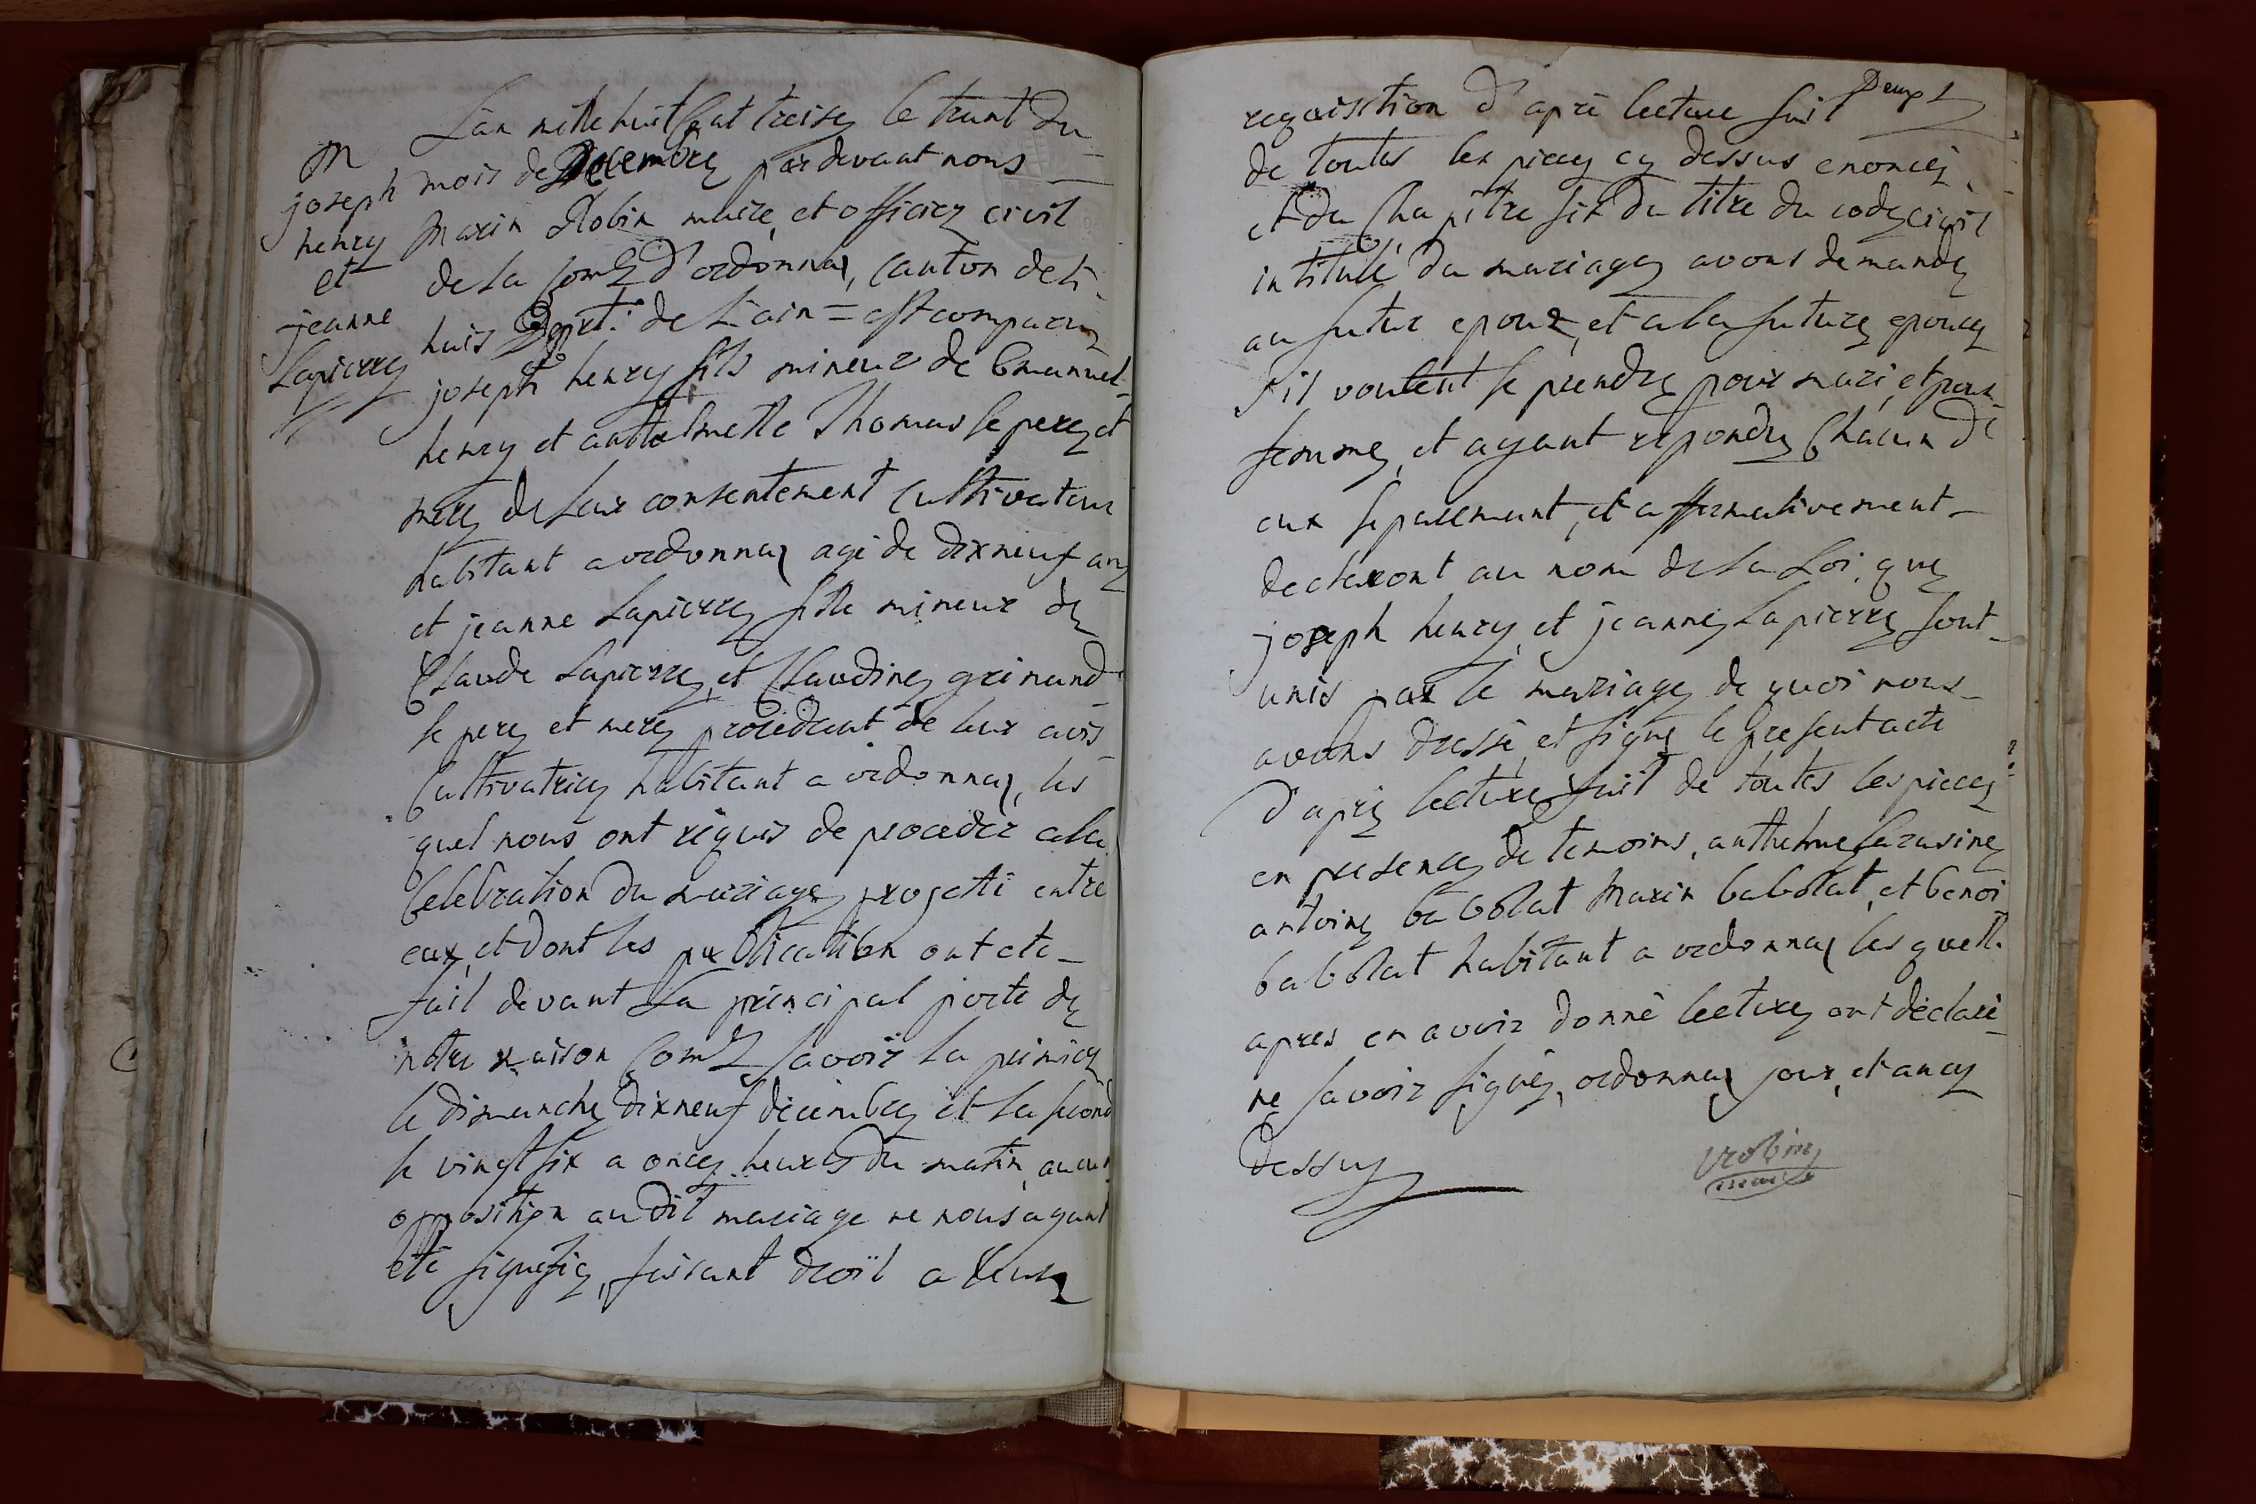 M
joseph
henry
et
jeanne
Lapierre
L'an mille huit Cent treise le trant du
mois de Decembre par devant nous
Marin Robin maire, et officier civil
de la Com.e d'ordonnas, Canton de l'
huis Dept. de L'ain = est comparu
joseph henry fils mineur de Emanuel
henry et anthelmette Thomas se pere et
mere de leur consentement Cultivateur
habitant a ordonnas agé de dix neuf ans
et jeanne Lapierre fille mineur de
Claude Lapierre et Claudine grinand
se pere et mere procedant de leur avis
Cultivatrice habitant a ordonnas, les
quel nous ont réquis de proceder a la
Celebration du mariage projetté entre
eux, et dont les publication ont ete
fait devant La principal porte de
notre maison Com.e savoir la premier
le dimanche dix neuf décembre et la second
le vingt six a onze heures du matin, aucun
opposition au dit mariage ne nous ayant
été signifie, faisant droit a leur
requisition d'apré lecture fait
de toutes les pieces cy dessus enoncéz
et du Chapitre six du titre du code civil
intitulé du mariage avons demande
au futur epoux, et a la future epouse
s'il voulent se prendre pour mari, et pour
femme, et ayant repondu Chacun d'
eux separement, et affirmativement
declaront au nom de la Loi, que
joseph henry, et jeanne Lapierre sont
unis par le mariage de quoi nous
avons dressé et signé le present acte
d'aprè lecture fait de toutes les pieces
en presence de temoins, anthelme sarasine
antoine babolat Marin babolat, et benoi
babolat habitant a ordonnas les quell.
apres en avoir donné lecture ont déclaré
ne savoir signé, ordonnas jour, et an cy
dessus
Robin
maire